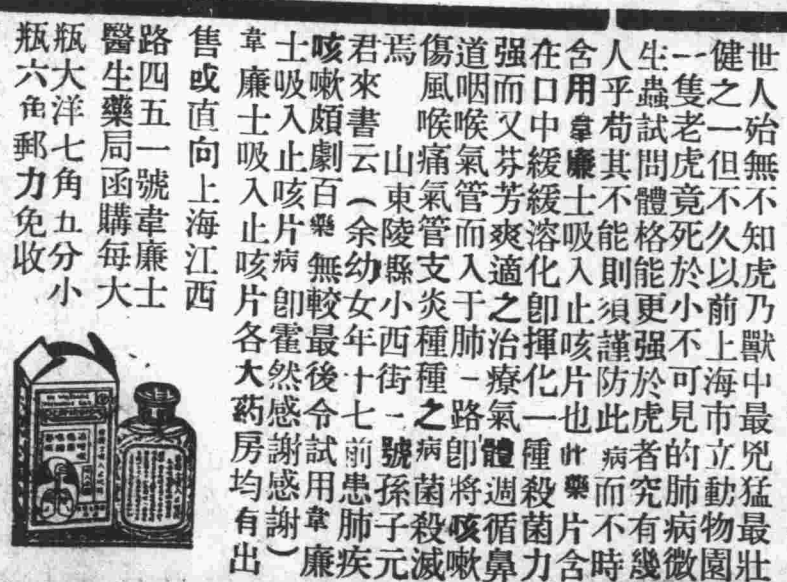 世人殆無不知虎乃獸中最兇猛最壯
健之一但不久以前上海市立動物園
一隻老虎竟死於小不可見的肺病微
生蟲試問體格能更强於虎者究有幾
人乎苟其不能則須謹防此病而不時
含用韋廉士吸入止咳片也此藥片含
在口中緩緩溶化卽揮化一種殺菌力
强而又芬芳爽適之治療氣體週循鼻
道咽喉氣管而入于肺一路卽將咳嗽
傷風喉痛氣管支炎種種之病菌殺滅
焉　山東陵縣小西街一號孫子元
君來書云（余幼女年十七前患肺疾
咳嗽頗劇百藥無較最後令試用韋廉
士吸入止咳片病卽霍然感謝感謝）
韋廉士吸入止咳片各大葯房均有出
售或直向上海江西
路四五一號韋廉士
醫生藥局函購每大
瓶大洋七角五分小
瓶六角郵力免收